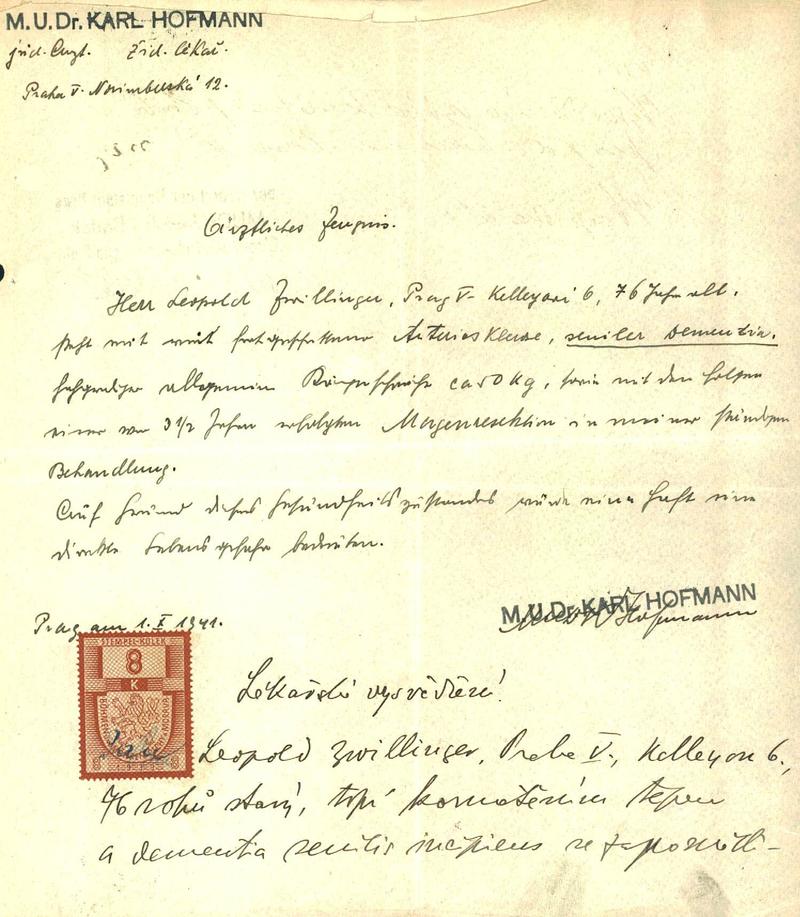 M.U.Dr. KARL HOFMANN
jüd. Arzt. žid. lékař.
Praha V. Norimberská 12.
Ärztliches Zeugnis.
Herr Leopold Zwillinger, Prag V- Kelleyova 6, 76 Jahre alt.
steht mit weit fortgeschrittener Arteriosklerose, seniler Dementia,
hochgradiger allgemeiner Körperschwäche ca 50 kg, sowie mit den Folgen
einer vor 3 1/2 Jahren erfolgten Magenresektion in meiner ständigen
Behandlung.
Auf Grund dieses Gesundheitszustandes würde eine Haft eine
direkte Lebensgefahr bedeuten.
M.U.Dr. KARL HOFMANN
Hofmann
Prag am 1. X 1941.
STEMPEL-KOLEK
8
K
Lékařské vysvědčení.
Leopold Zwillinger, Praha V., Kelleyova 6.,
76 roků starý, trpí kornatěním tepen
a dementia senilis incipiens